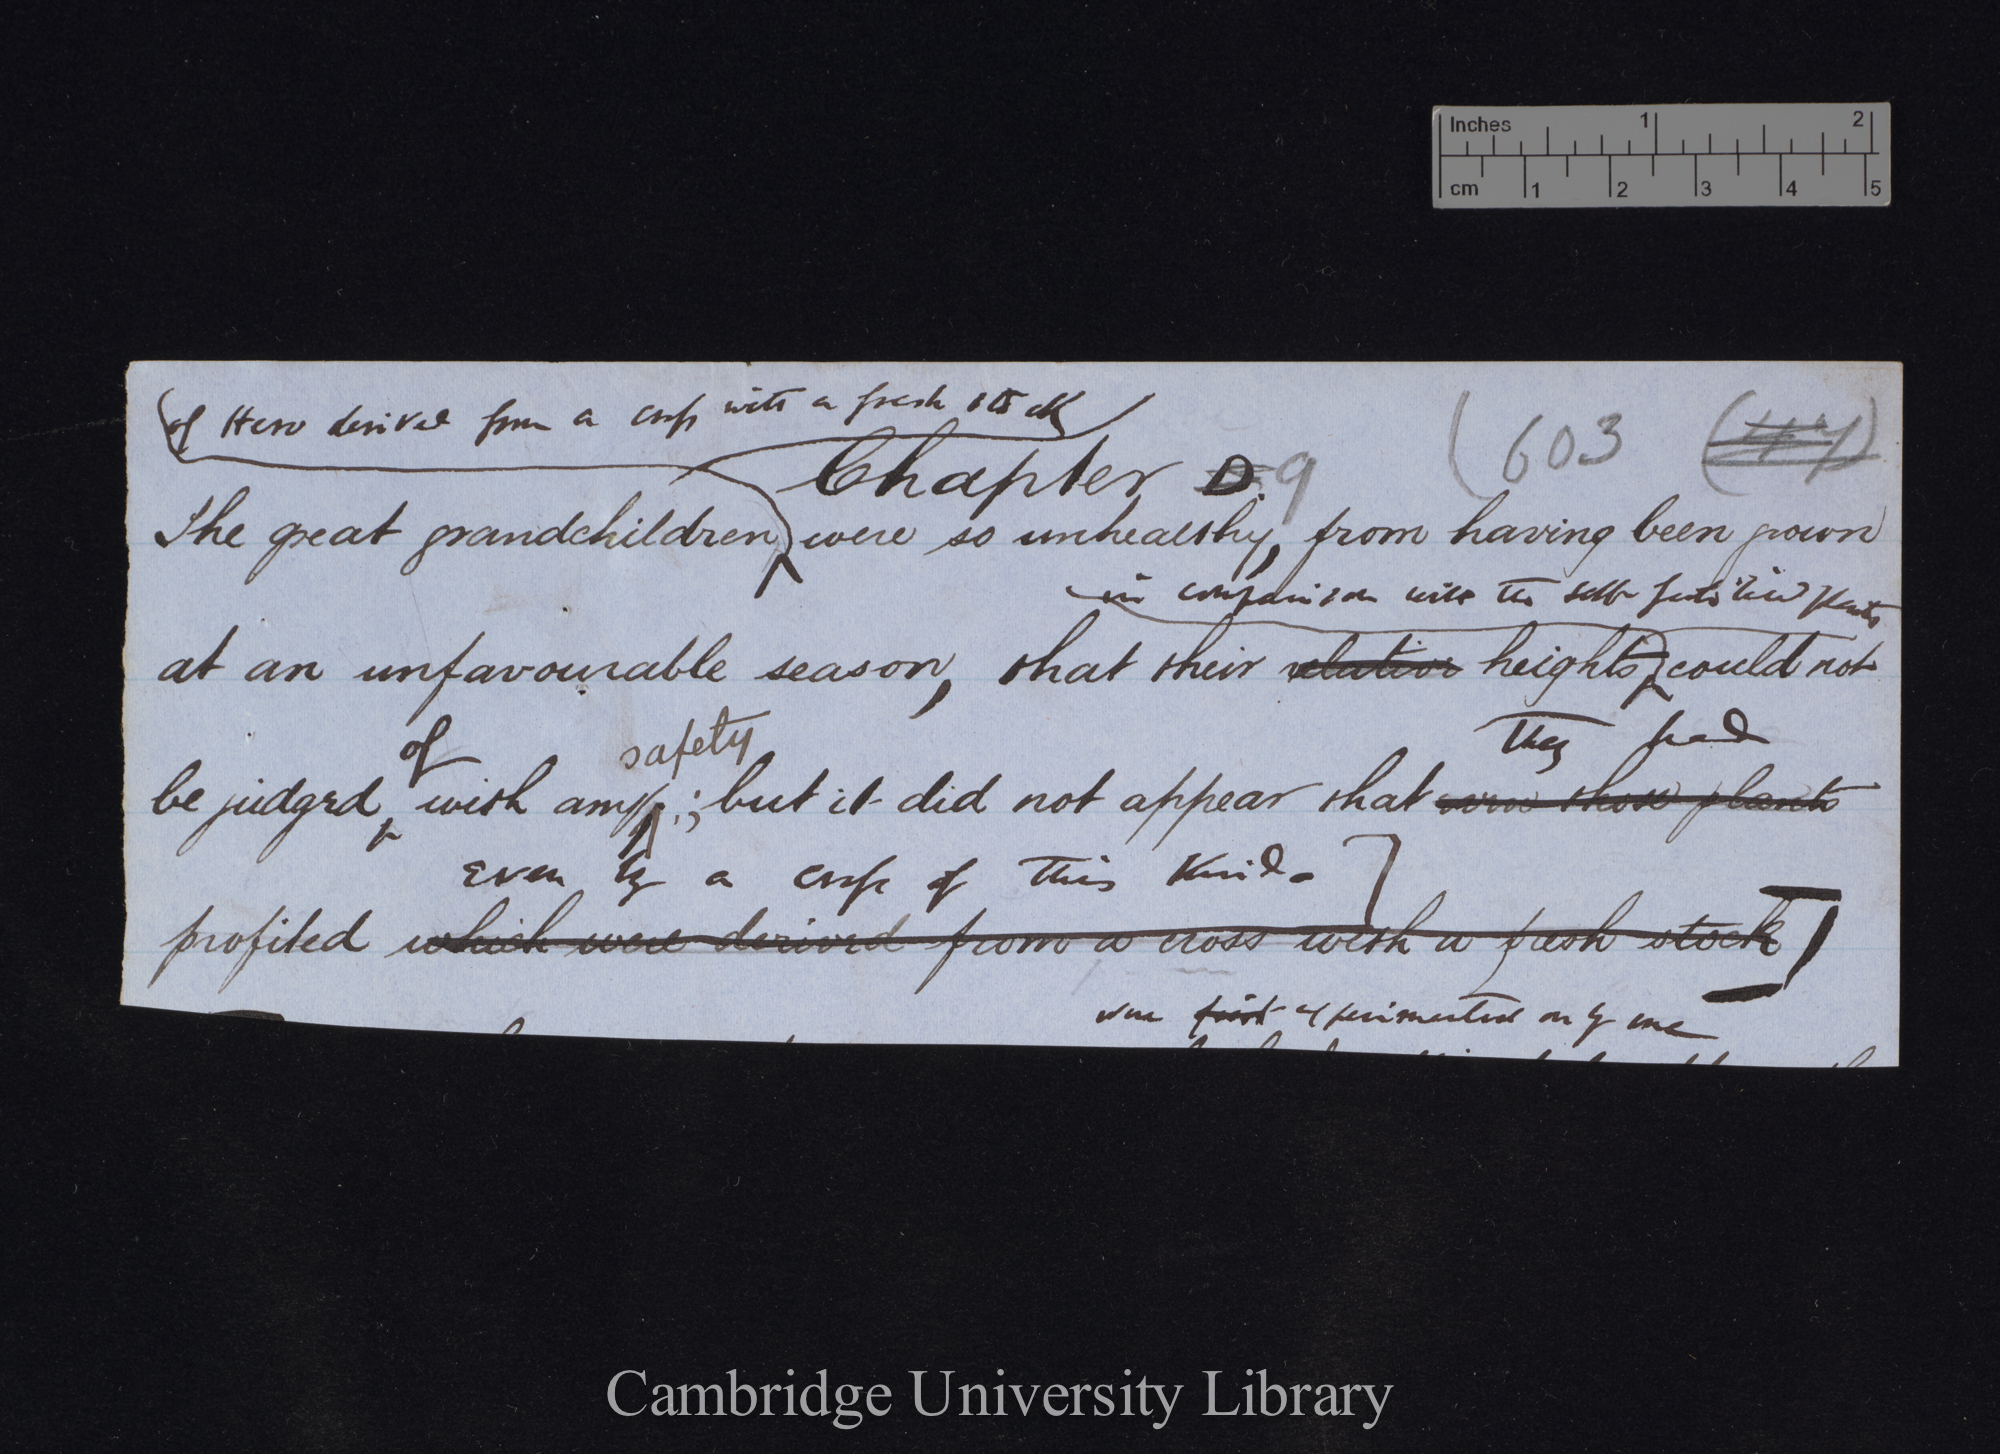 Inches 1 2
cm 1 2 3 4 5
of Hero derived from a cross with a fresh stock
Chapter D. 9 (603
The great grandchildren, were so unhealthy, from having been grown
in comparison with the self-fertilised plants
at an unfavourable season, that their relative heights, could not
of safety They had
be judged, with any; but it did not appear that even those plants
even by a cross of this kind.
profited which were derived from a cross with a fresh stock]
were first experimented on by me
Cambridge University Library